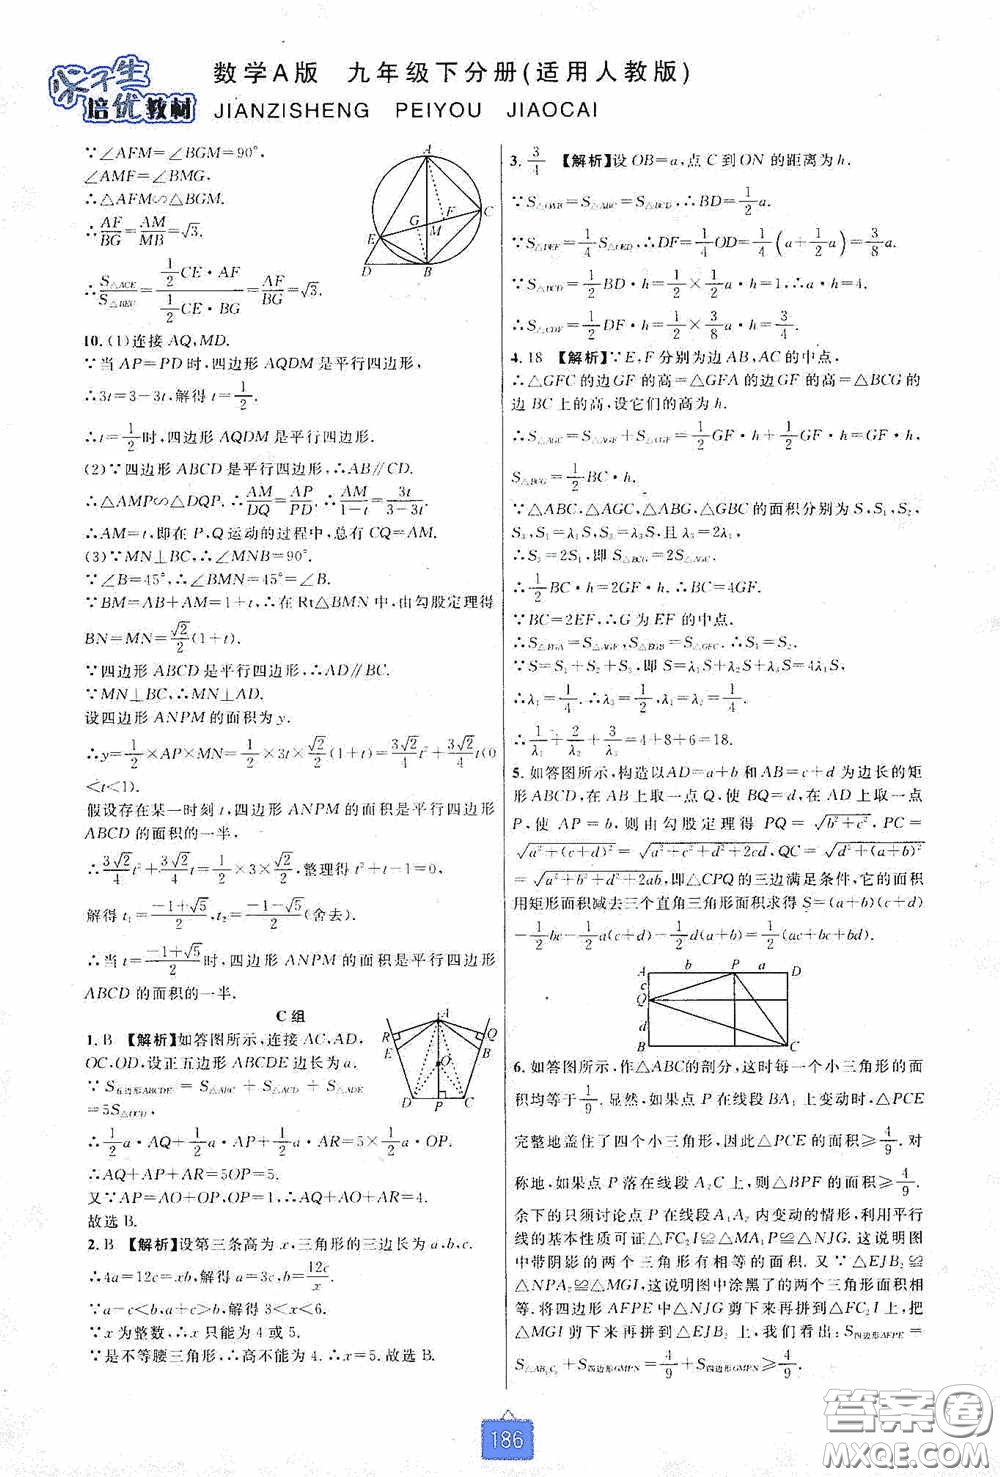 尖子生
培优教材
数学A版 九年级下分册(适用人教版)
JIANZISHENG PEIYOU JIAOCAI
∵∠AFM=∠BGM=90°,
∠AMF=∠BMG,
∴△AFM∽△BGM.
∴AF/BG=AM/MB=√3.
∴S△ACE/S△BEC=(1/2 CE·AF)/(1/2 CE·BG)=AF/BG=√3.
A
G
F
C
M
E
D
B
10. (1)连接 AQ,MD.
∵当 AP=PD 时,四边形 AQDM 是平行四边形,
∴3t=3-3t,解得 t=1/2.
∴t=1/2时,四边形 AQDM 是平行四边形.
(2)∵四边形 ABCD 是平行四边形,∴AB∥CD.
∴△AMP∽△DQP. ∴AM/DQ=AP/PD. ∴AM/1-t=3t/3-3t.
∴AM=t,即在 P、Q 运动的过程中,总有 CQ=AM.
(3)∵MN⊥BC,∴∠BNM=90°.
∵∠B=45°,∴∠BMN=45°=∠B.
∵BM=AB+AM=1+t,∴在 Rt△BMN 中,由勾股定理得
BN=MN=√2/2(1+t).
∵四边形 ABCD 是平行四边形,∴AD∥BC.
∵MN⊥BC,∴MN⊥AD.
设四边形 ANPM 的面积为 y.
∴y=1/2×AP×MN=1/2×3t×√2/2(1+t)=3√2/4 t²+3√2/4 t(0
<t<1).
假设存在某一时刻 t,四边形 ANPM 的面积是平行四边形
ABCD 的面积的一半,
∴3√2/4 t²+3√2/4 t=1/2×3×√2/2,整理得 t²+t-1=0.
解得 t₁=-1+√5/2,t₂=-1-√5/2(舍去).
∴当 t=-1+√5/2时,四边形 ANPM 的面积是平行四边形
ABCD 的面积的一半.
C 组
1. B 【解析】如答图所示,连接 AC,AD,
OC,OD,设正五边形 ABCDE 边长为 a.
∵S五边形ABCDE = S△ABC + S△ACD + S△ADE
=5S△OCD,
∴1/2 a·AQ+1/2 a·AP+1/2 a·AR=5×1/2 a·OP.
∴AQ+AP+AR=5OP.
又∵AP=AO+OP,∴AO+AQ+AR=4OP.
故选 B.
A
R
Q
E
B
O
D
P
C
2. B 【解析】设第三条高为 x,三角形的三边长为 a,b,c.
∴4a=12c=xb,解得 a=3c,b=12c/x.
∵a-c<b,a+c>b,解得3<x<6.
∵x 为整数,∴x 只能为 4 或 5.
∵是不等腰三角形,∴高不能为 4. ∴x=5. 故选 B.
3. 3/4 【解析】设 OB=a,点 C 到 ON 的距离为 h.
∵S△OAB=S△ABC=S△BCD,∴BD=1/2 a.
∵S△DEF=1/4 S△OED,∴DF=1/4 OD=1/4(a+1/2 a)=3/8 a.
∵S△BCD=1/2 BD·h=1/2×1/2 a·h=1,∴a·h=4.
∴S△CDF=1/2 DF·h=1/2×3/8 a·h=3/4.
4. 18 【解析】∵E,F 分别为边 AB,AC 的中点.
∴△GFC 的边 GF 的高=△GFA 的边 GF 的高=△BCG 的
边 BC 上的高,设它们的高为 h.
∴S△AGC=S△AGF+S△CGF=1/2 GF·h+1/2 GF·h=GF·h,
S△BCG=1/2 BC·h.
∵△ABC,△AGC,△ABG,△GBC 的面积分别为 S,S₁,S₂,
S₃,S₁=λ₁S,S₂=λ₂S,S₃=λ₃S,且 λ₃=2λ₁,
∴S₃=2S₁,即 S△BCG=2S△AGC.
∴1/2 BC·h=2GF·h,∴BC=4GF.
∵BC=2EF,∴G 为 EF 的中点.
∴S△AGE=S△AGF,S△EGB=S△GFC. ∴S₁=S₂.
∵S=S₁+S₂+S₃,即 S=λ₁S+λ₂S+λ₃S=4λ₁S,
∴λ₁=1/4. ∴λ₂=1/4,λ₃=1/2.
∴1/λ₁+2/λ₂+3/λ₃=4+8+6=18.
5. 如答图所示,构造以AD=a+b 和 AB=c+d 为边长的矩
形ABCD,在 AB 上取一点 Q,使 BQ=d,在 AD 上取一点
P,使 AP=b,则由勾股定理得 PQ=√b²+c²,PC=
√a²+(c+d)²=√a²+c²+d²+2cd,QC=√d²+(a+b)²
=√a²+b²+d²+2ab,即△CPQ 的三边满足条件,它的面积
用矩形面积减去三个直角三角形面积求得 S=(a+b)(c+d)
-1/2 bc-1/2 a(c+d)-1/2 d(a+b)=1/2(ac+bc+bd).
A b P a D
c
Q
d
B C
6. 如答图所示,作△ABC的剖分,这时每一个小三角形的面
积均等于1/9. 显然,如果点 P 在线段 BA₁ 上变动时,△PCE
完整地盖住了四个小三角形,因此△PCE 的面积≥4/9. 对
称地,如果点 P 在线段 A₂C 上,则△BPF 的面积≥4/9.
余下的只须讨论点 P 在线段 A₁A₂ 内变动的情形,利用平行
线的基本性质可证△FC₂I≌△MA₁P≌△NJG. 这说明图
中带阴影的两个三角形有相等的面积. 又∵△EJB₂≌
△NPA₂≌△MGI,这说明图中涂黑了的两个三角形面积相
等. 将四边形 AFPE 中△NJG 剪下来再拼到△FC₂I 上,将
△MGI 剪下来再拼到△EJB₂上,我们看出:S四边形AFPE=
S△AB₂C₂+S四边形GMPN=4/9+S四边形GMPN≥4/9.
186
答案圈
MXQE.COM